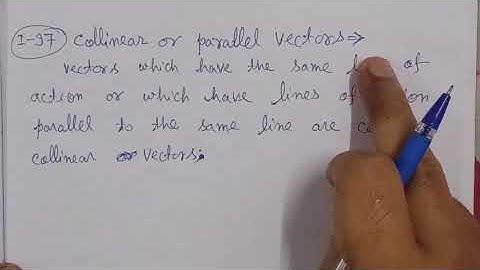 I-97 Collinear or parallel vectors⇒
vectors which have the same of
action or which have lines of
parallel to the same line are
collinear vectors.